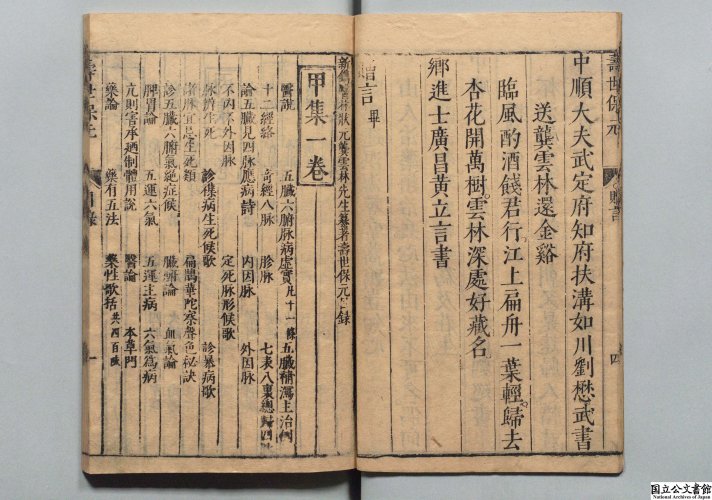 壽世保元
贈言
四
中順大夫武定府知府扶溝如川劉懋武書
送龔雲林還金谿
臨風酌酒餞君行江上扁舟一葉輕歸去
杏花開萬樹雲林深處好藏名
鄉進士廣昌黃立言書
贈言畢
新鐫醫林狀元龔雲林先生纂著壽世保元目錄
甲集一卷
醫說 五臟六腑脉病虛實凡十一條 五臟補瀉主治
十二經絡 奇經八脉 診脉 七表八裏總歸四脉
論五臟見四脉應病詩 内因脉 外因脉
不内不外因脉 定死脉形候歌
脉辨生死 診雜病生死候歌 診暴病歌
諸脉宜忌生死類 扁鵲華陀察聲色秘訣
診五臟六腑氣絕症候 臟腑論 血氣論
脾胃論 五運六氣 五運主病 六氣爲病
亢則害承廼制體用說 醫論 本草門
藥論 藥有五法 藥性歌括共四百味
壽世保元
目錄
一
国立公文書館
National Archives of Japan